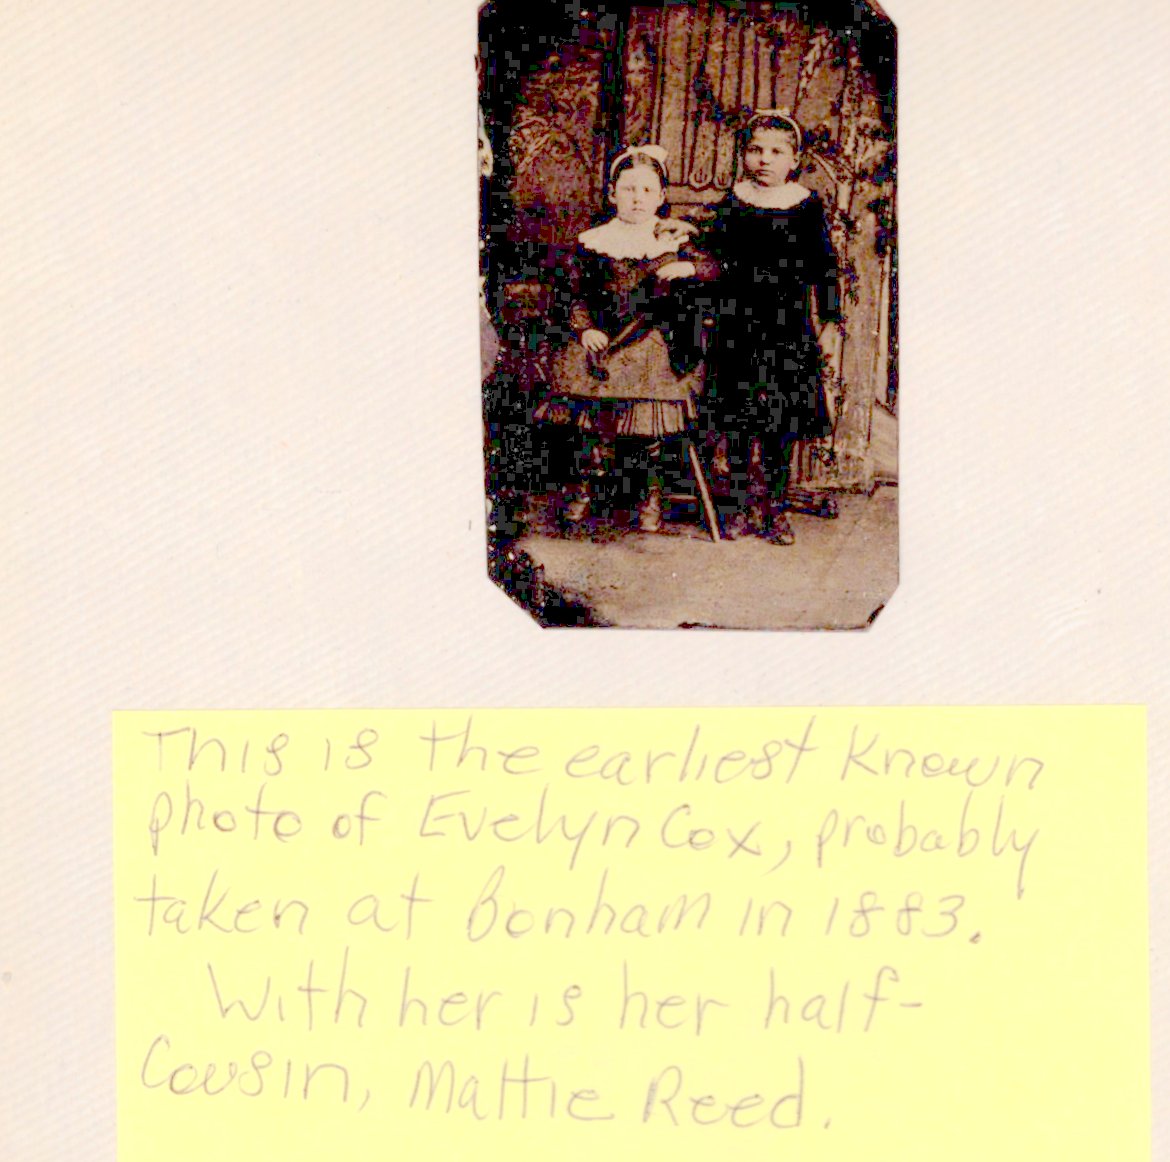 This is the earliest known
photo of Evelyn Cox, probably
taken at Bonham in 1883.
With her is her half-
Cousin, Mattie Reed.